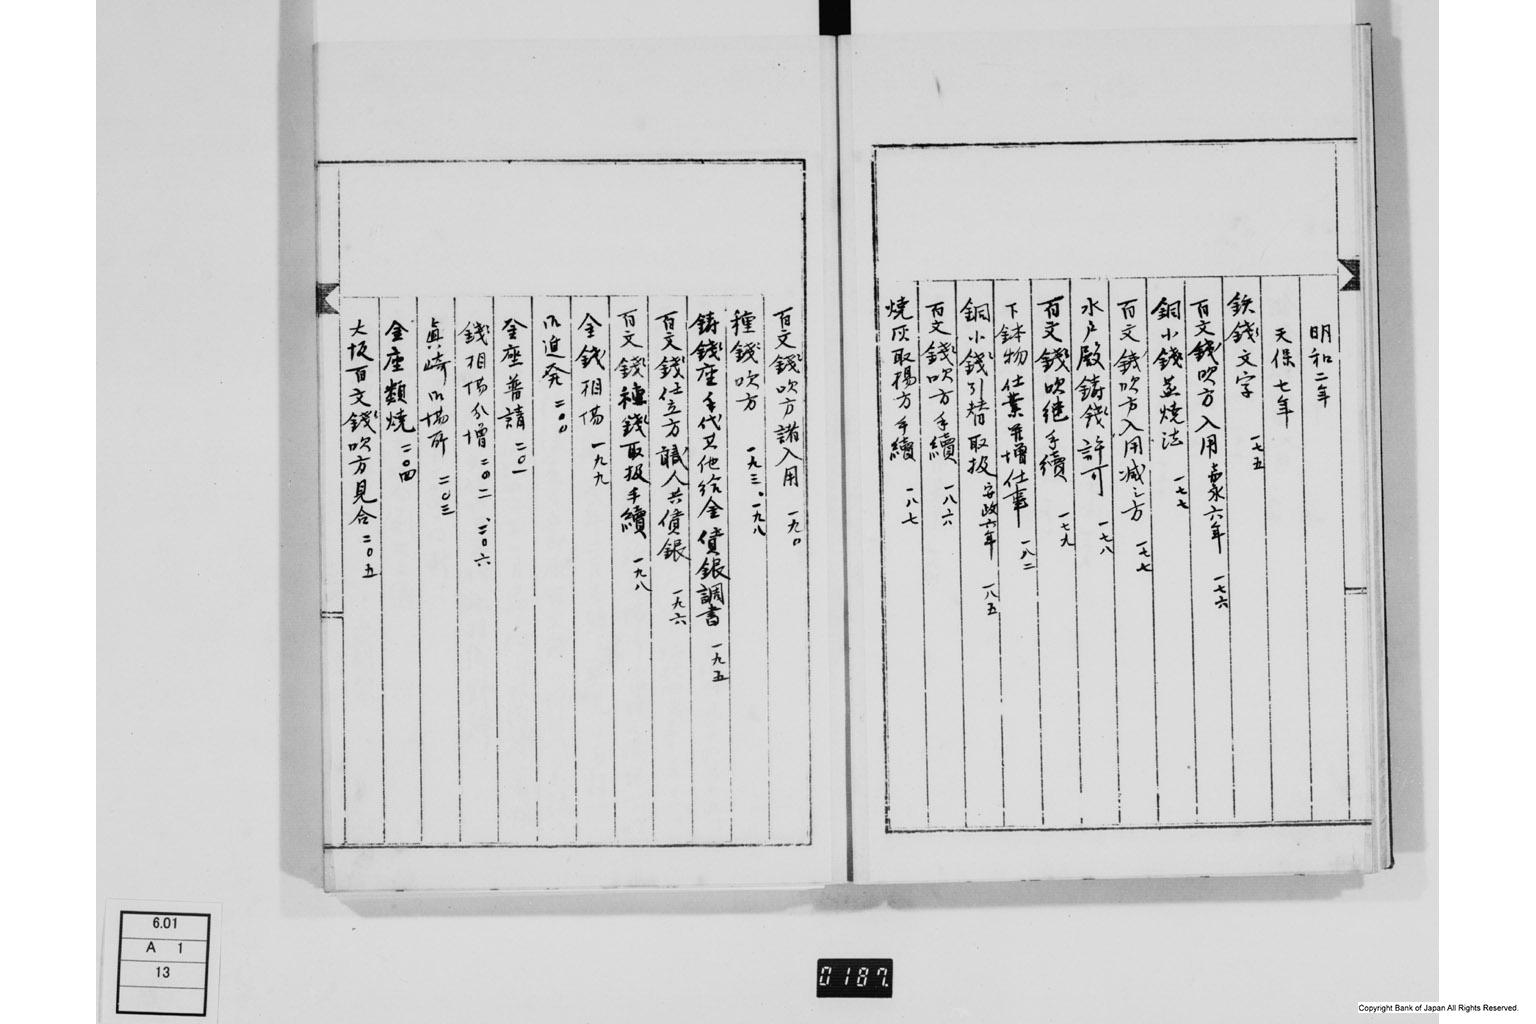 明和二年
天保七年
鉄錢文字 一七五
百文錢吹方入用 嘉永六年 一七六
銅小錢蒸燒法 一七七
百文錢吹方入用減シ方 一七七
水戸殿鋳錢許可 一七八
百文錢吹継手續 一七九
下鉢物仕業並増仕事 一八二
銅小錢引替取扱 安政六年 一八五
百文錢吹方手續 一八六
燒灰取揚方手續 一八七
百文錢吹方諸入用 一九〇
種錢吹方 一九三、一九八
鋳錢座手代其他給金償銀調書 一九五
百文錢仕立方職人共償銀 一九六
百文錢種錢取扱手續 一九八
金錢相場 一九九
御進発 二〇〇
金座普請 二〇一
錢相場分増 二〇二、二〇六
真崎御場所 二〇三
金座類燒 二〇四
大坂百文錢吹方見合 二〇五
6.01
A 1
13
0187.
Copyright Bank of Japan All Rights Reserved.